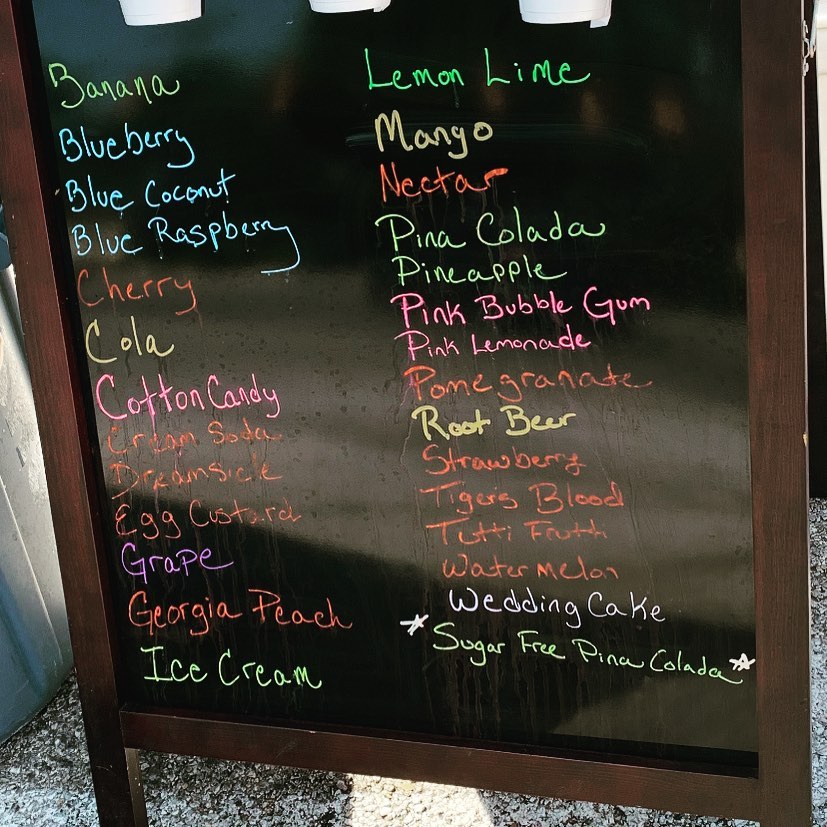 Banana
Blueberry
Blue Coconut
Blue Raspberry
Cherry
Cola
Cotton Candy
Cream Soda
Dreamsicle
Egg Custard
Grape
Georgia Peach
Ice Cream
Lemon Lime
Mango
Nectar
Pina Colada
Pineapple
Pink Bubble Gum
Pink Lemonade
Pomegranate
Root Beer
Strawberry
Tigers Blood
Tutti Frutti
Watermelon
Wedding Cake
Sugar Free Pina Colada